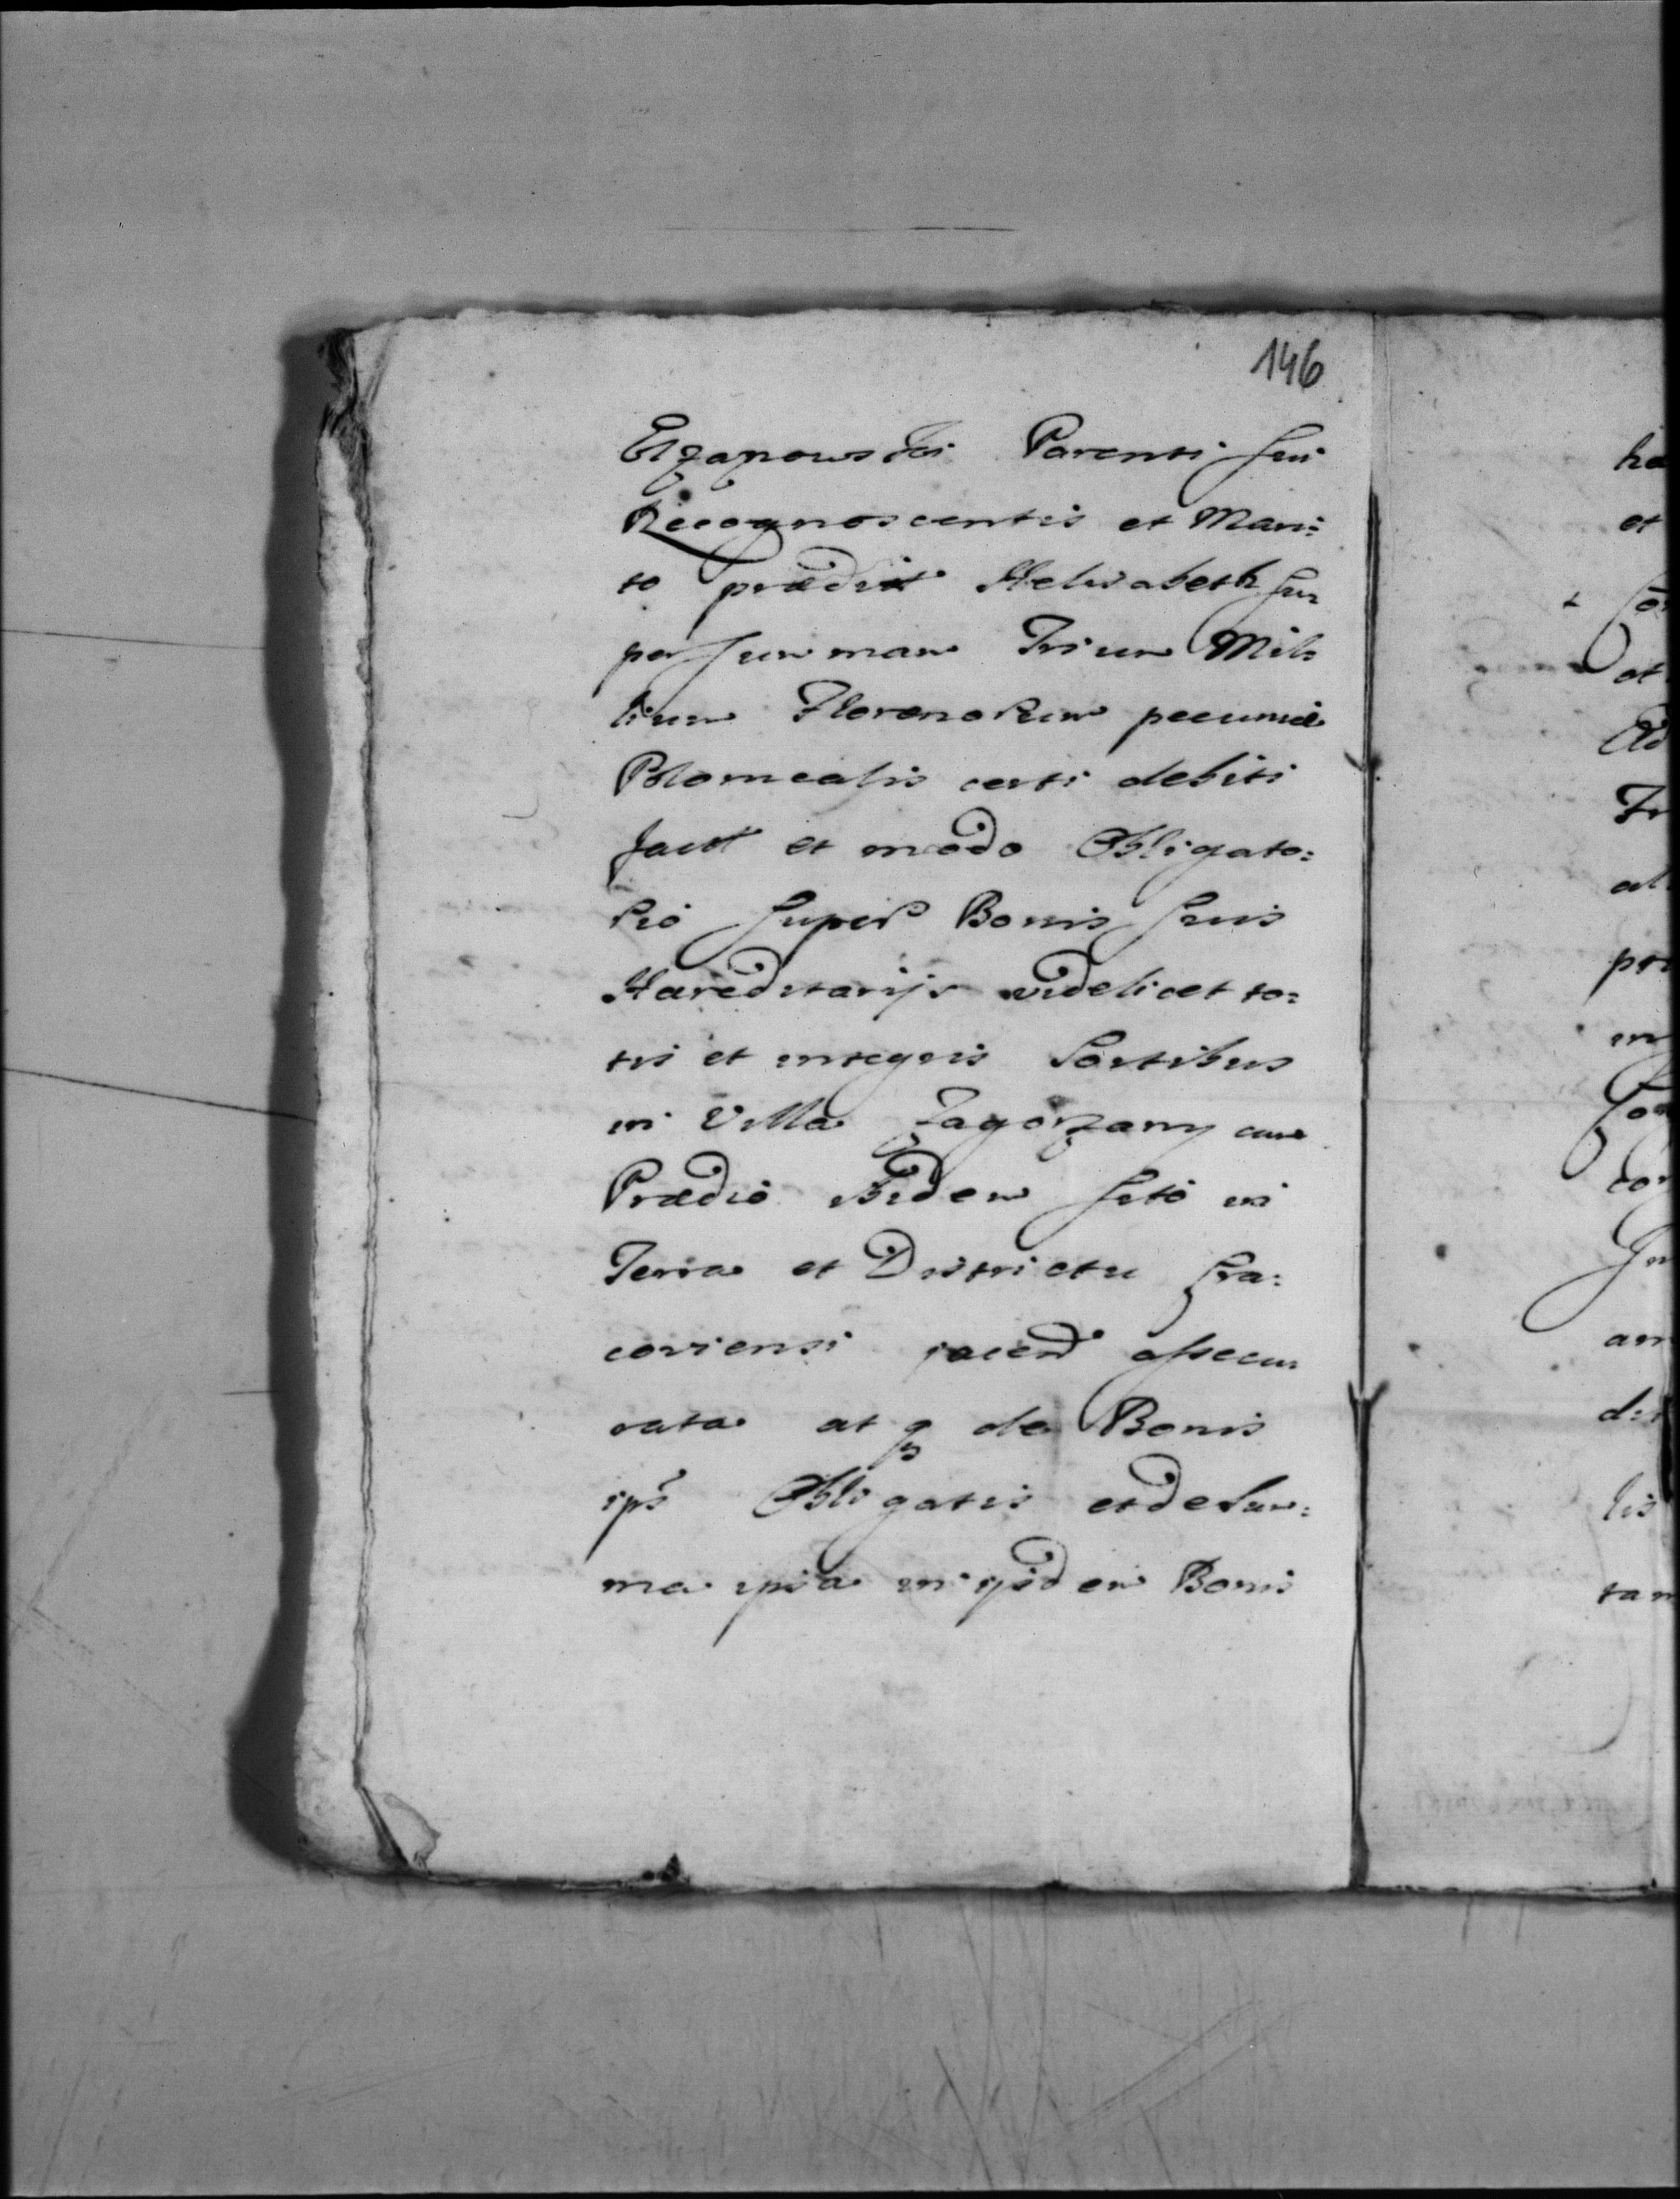 146
Parenti sui
Recognoscentis et Mari:
to prædict Helisabeth su
per summam Trium Mil:
lium Florenorum pecuniæ
Polonicalis certi debiti
fact et modo Obligato:
rio super Bonis suis
Hæreditarijs videlicet to:
tis et integris Sortibus
in Villa Zagorzany cum
Prædio ibidem sito in
Terra et Districtu Cra:
coviensi jacen assecu
rata atq de Bonis
ips Obligatis et de Sum:
ma ipsa in ijsdem Bonis
ha
et
et
Ad
Tr
al
pr
in
con
In
am
des
lis
tam